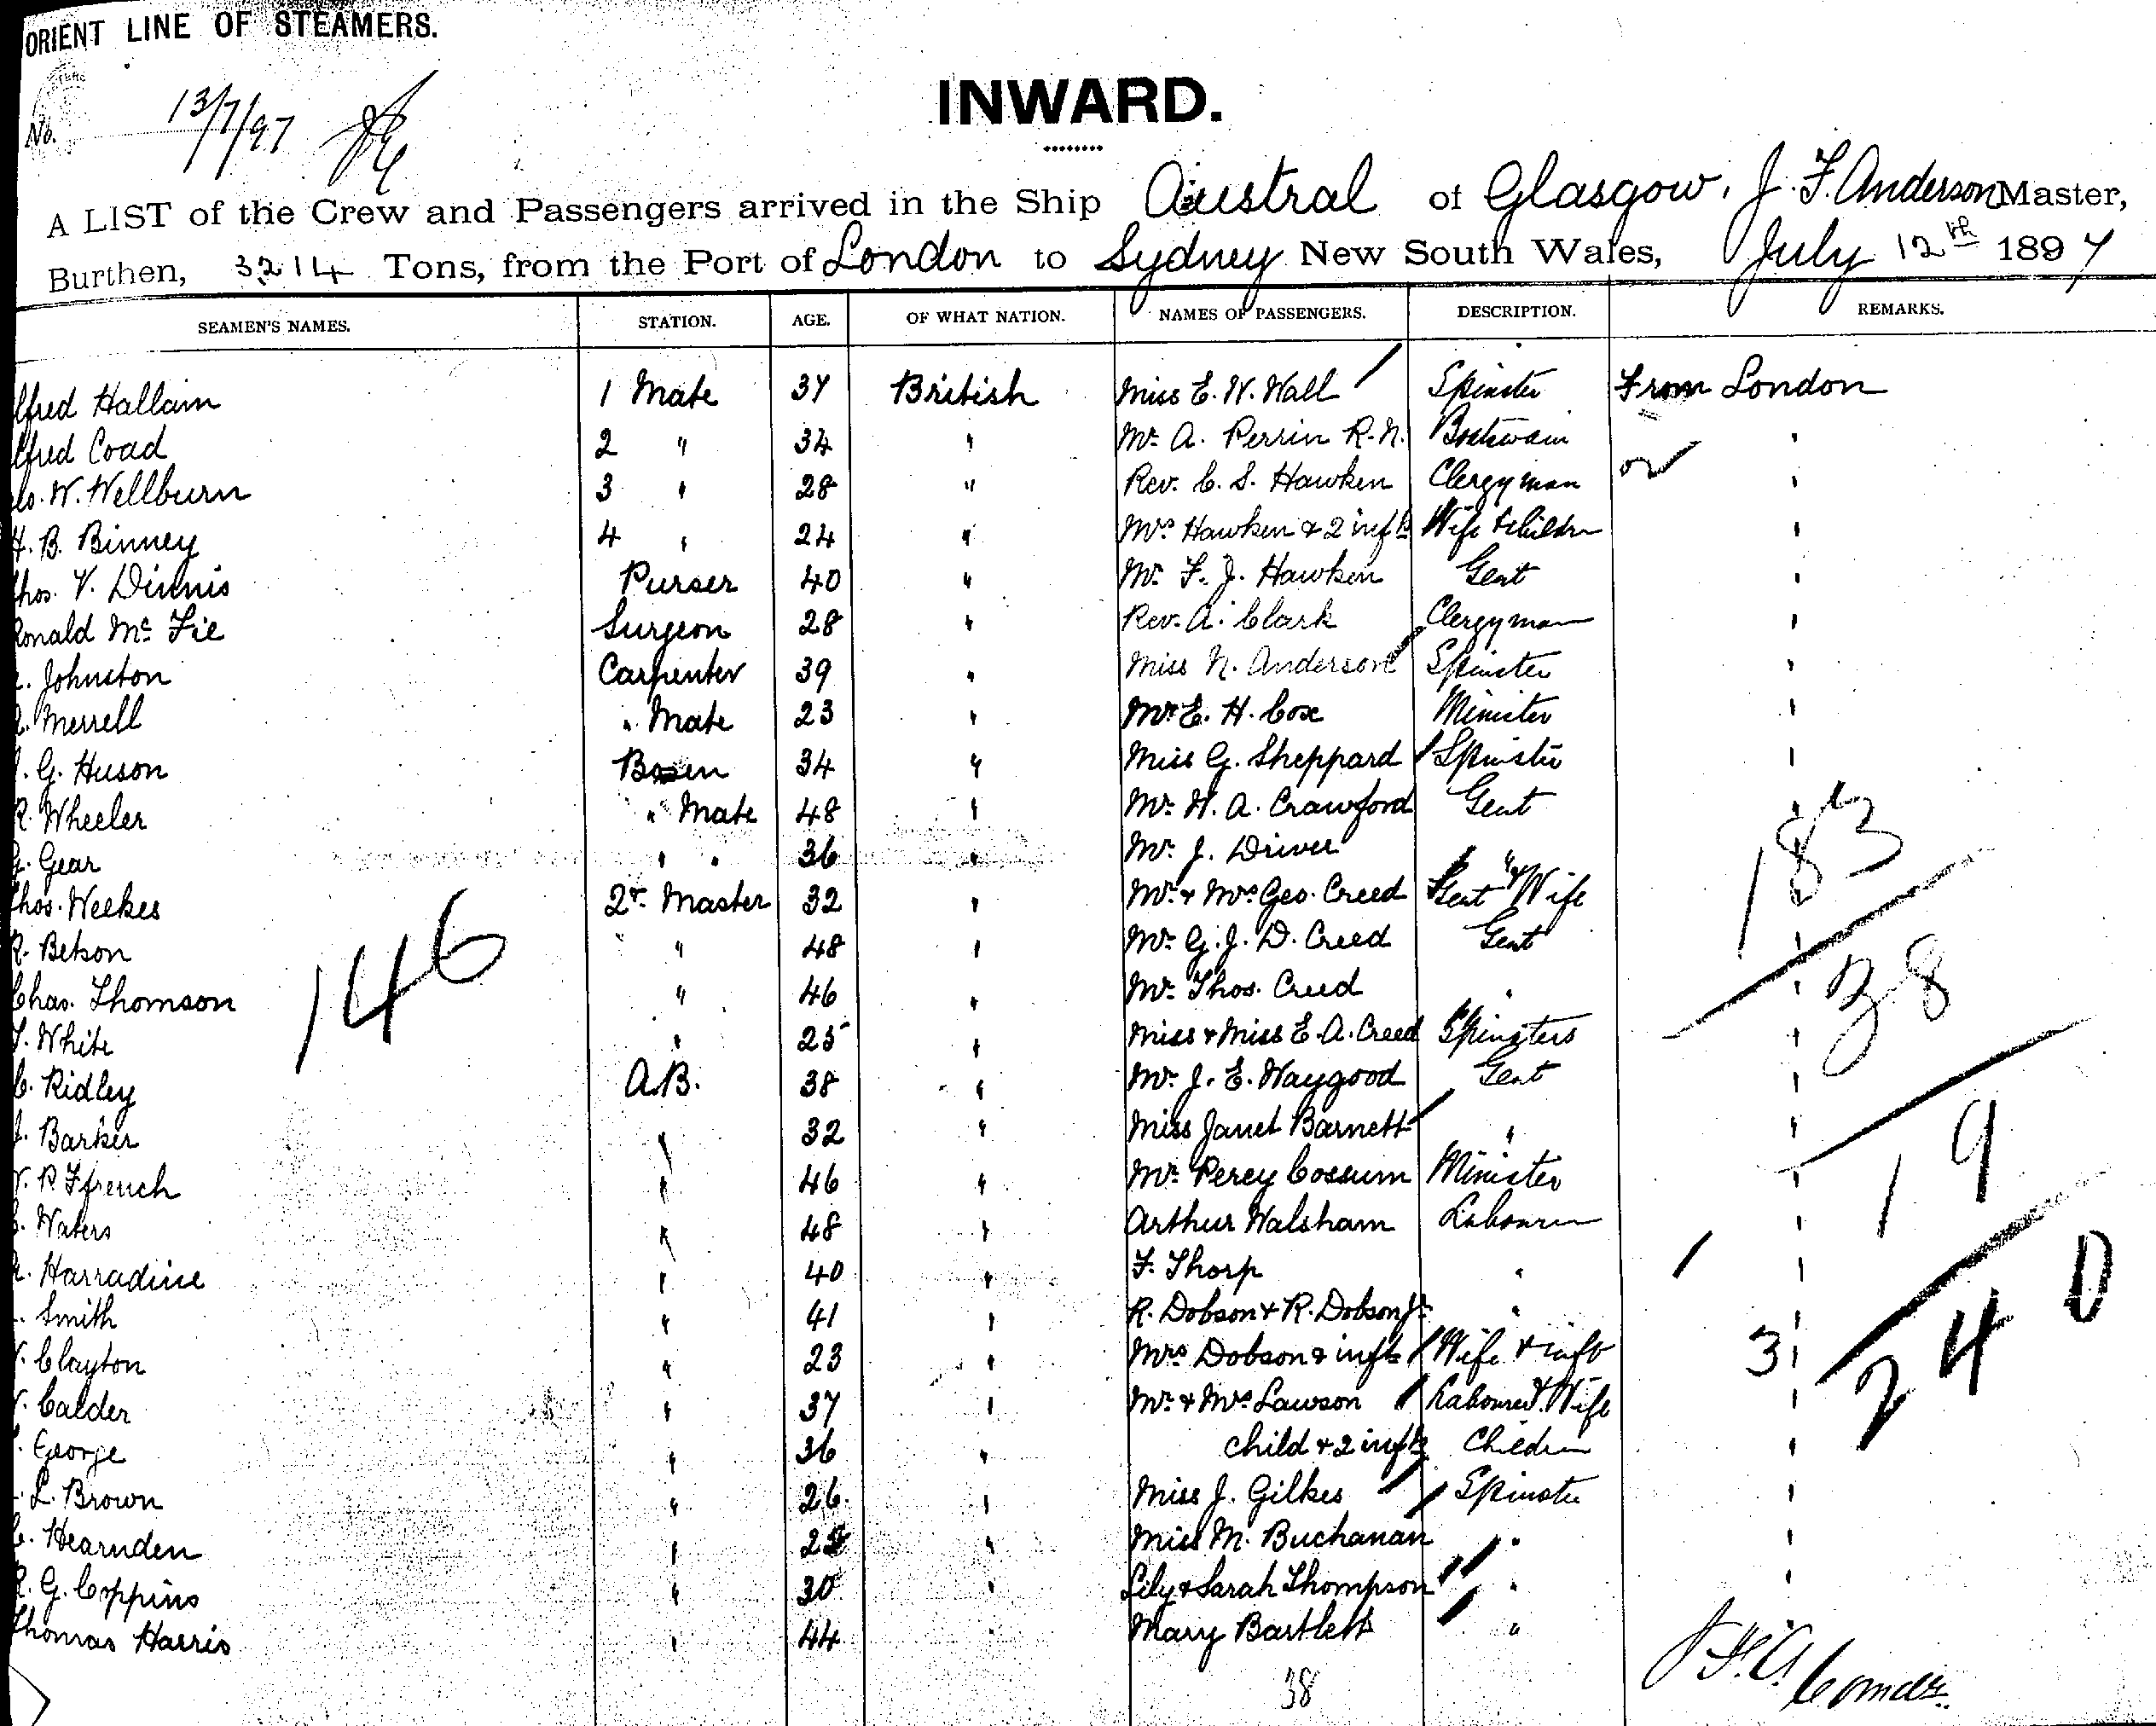 ORIENT LINE OF STEAMERS.
No. 13/7/97
INWARD.
A LIST of the Crew and Passengers arrived in the Ship Austral of Glasgow, J. F. Anderson Master,
Burthen, 3214 Tons, from the Port of London to Sydney New South Wales, July 12th 1897
SEAMEN'S NAMES. STATION. AGE. OF WHAT NATION. NAMES OF PASSENGERS. DESCRIPTION. REMARKS.
lfred Hallam 1 Mate 37 British Miss E. W. Wall Spinster From London
lfred Coad 2 " 34 " Mr. A. Perrin R.N. Boatswain "
eo. W. Wellburn 3 " 28 " Rev. C. S. Hawken Clergyman "
H. B. Binney 4 " 24 " Mrs Hawken & 2 infts Wife & Children "
hos. V. Dinnis Purser 40 " Mr. F. J. Hawken Gent "
Ronald Mc Fie Surgeon 28 " Rev. A. Clark Clergyman "
. Johnston Carpenter 39 " Miss N. Anderson Spinster "
. Merrell " Mate 23 " Mr E. H. Cox Minister "
. G. Huson Bosen 34 " Miss G. Sheppard Spinster "
R. Wheeler " Mate 48 " Mr. H. A. Crawford Gent "
G. Gear " " 36 " Mr. J. Driver " "
hos. Weekes 2r. Master 32 " Mr. & Mrs Geo. Creed Gent & Wife "
R. Betson " 48 " Mr. G. J. D. Creed Gent "
Chas. Thomson " 46 " Mr. Thos. Creed " "
T. White " 25 " Miss & Miss E. A. Creed Spinsters "
C. Ridley A.B. 38 " Mr. J. E. Waygood Gent "
J. Barker " 32 " Miss Janet Barnett " "
. R Ffrench " 46 " Mr. Percy Cossum Minister "
. Waters " 48 " Arthur Walsham Labourer "
. Harradine " 40 " F. Thorp " "
. Smith " 41 " R. Dobson & R. Dobson Jr. " "
. Clayton " 23 " Mrs Dobson & inft Wife & inft "
. Calder " 37 " Mr. & Mrs Lawson Labourer & Wife "
. George " 36 " child & 2 infts Children "
. L. Brown " 26 " Miss J. Gilkes Spinster "
. Hearnden " " Miss M. Buchanan " "
R. G. Coppins " 30 " Lily & Sarah Thompson " "
Thomas Harris " 44 " Mary Bartlett "
146
183
38
19
240
3
38
J.F.A. Comdr.